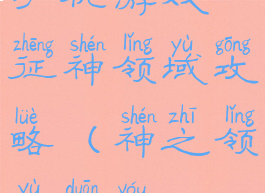 手机游戏
zhēng shén lǐng yù gōng
征神领域攻
lüè shén zhī lǐng
略（神之领
yù duān yóu